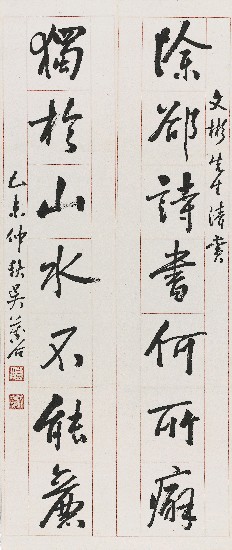 文彬先生清赏
除却詩書何所癖
獨於山水不能廉
乙未仲秋吴